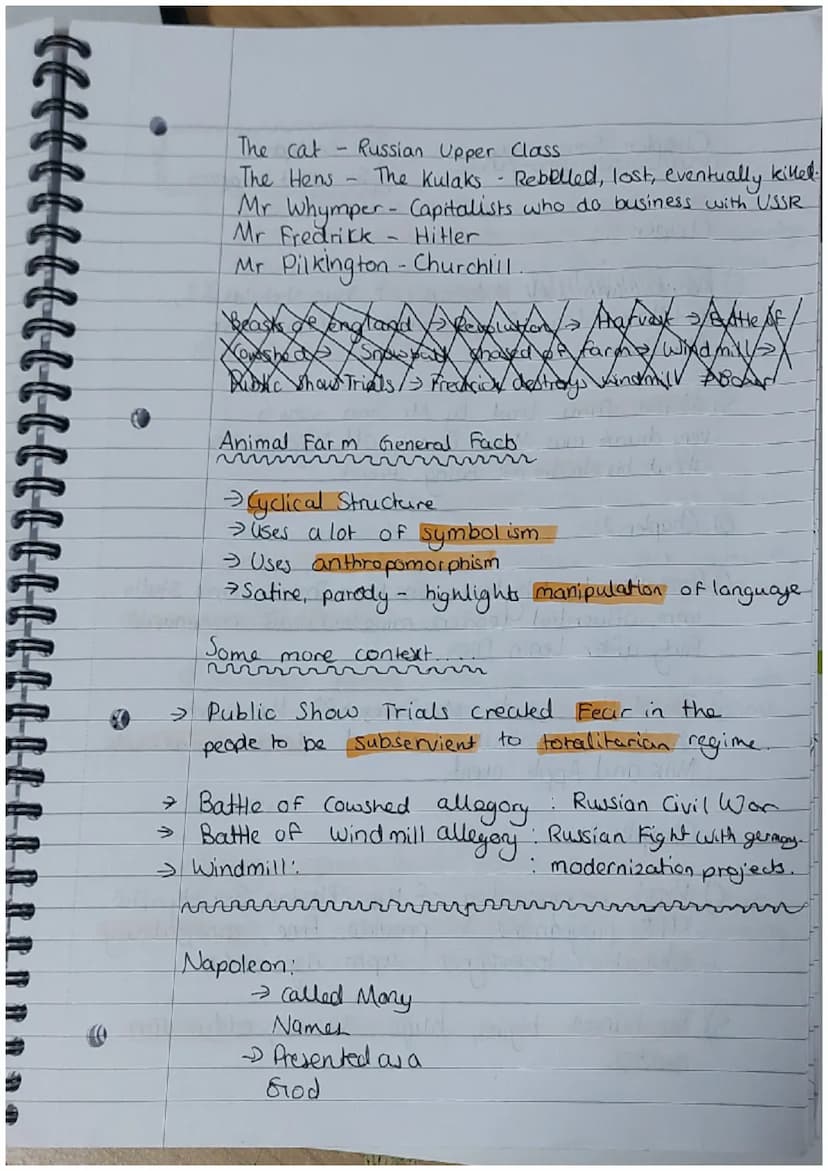 The cat - Russian Upper Class
The Hens - The Kulaks - Rebelled, lost, eventually killed.
Mr Whymper - Capitalists who do business with USSR
Mr Fredrick - Hitler
Mr Pilkington - Churchill.
Beasts of england → Revolution → Harvest → Battle of
Cowshed → Snowball chased of farm → Windmill →
Public Show Trials → Fredrick destroys windmill
Animal Farm General Facts
→ Cyclical Structure
→ Uses a lot of symbolism
→ Uses anthropomorphism
→ Satire, parody - highlights manipulation of language
Some more context....
→ Public Show Trials created Fear in the
people to be subservient to totalitarian regime.
→ Battle of Cowshed allegory : Russian Civil War
→ Battle of Windmill allegory : Russian Fight with germany.
→ Windmill : : modernization projects.
Napoleon:
→ Called Many
Names
→ Presented as a
God